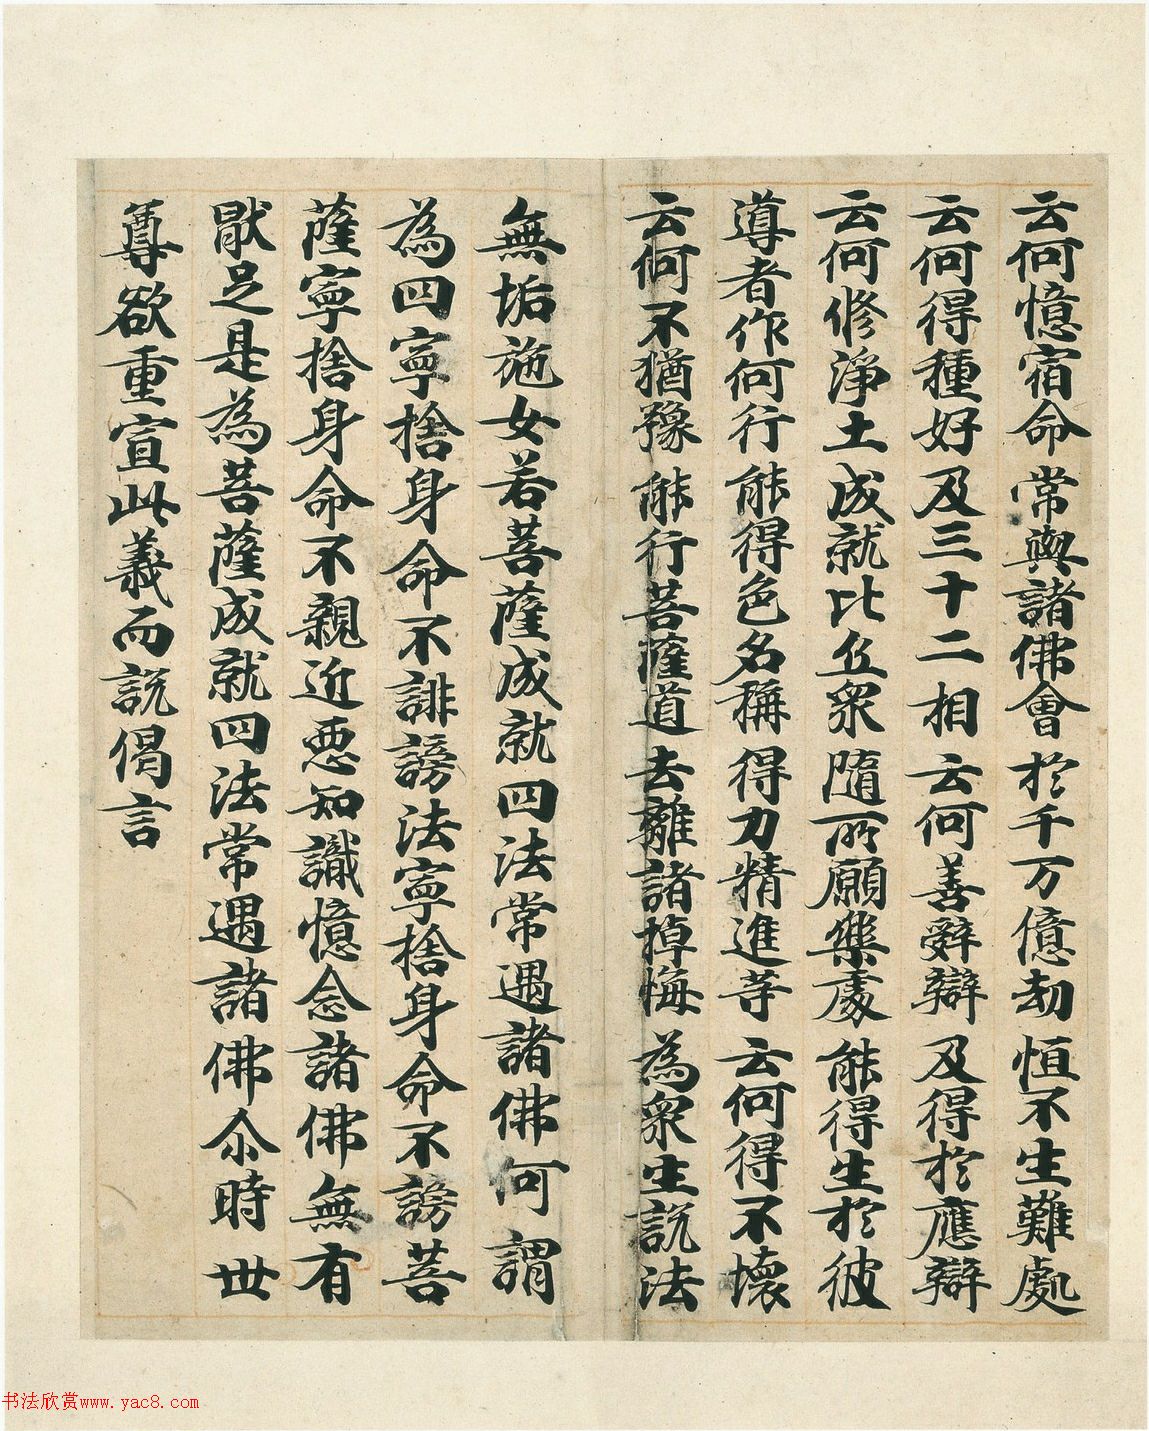 云何憶宿命 常與諸佛會 於千万億劫 恒不生難處
云何得種好 及三十二相 云何善辤辯 及得於應辯
云何修淨土 成就比丘衆 隨所願樂處 能得生於彼
導者作何行 能得色名稱 得力精進等 云何得不壞
云何不猶豫 能行菩薩道 去離諸掉悔 為衆生説法
無垢施女若菩薩成就四法常遇諸佛何謂
為四寧捨身命不誹謗法寧捨身命不謗菩
薩寧捨身命不親近惡知識憶念諸佛無有
猒足是為菩薩成就四法常遇諸佛尒時世
尊欲重宣此義而説偈言
书法欣赏www.yac8.com